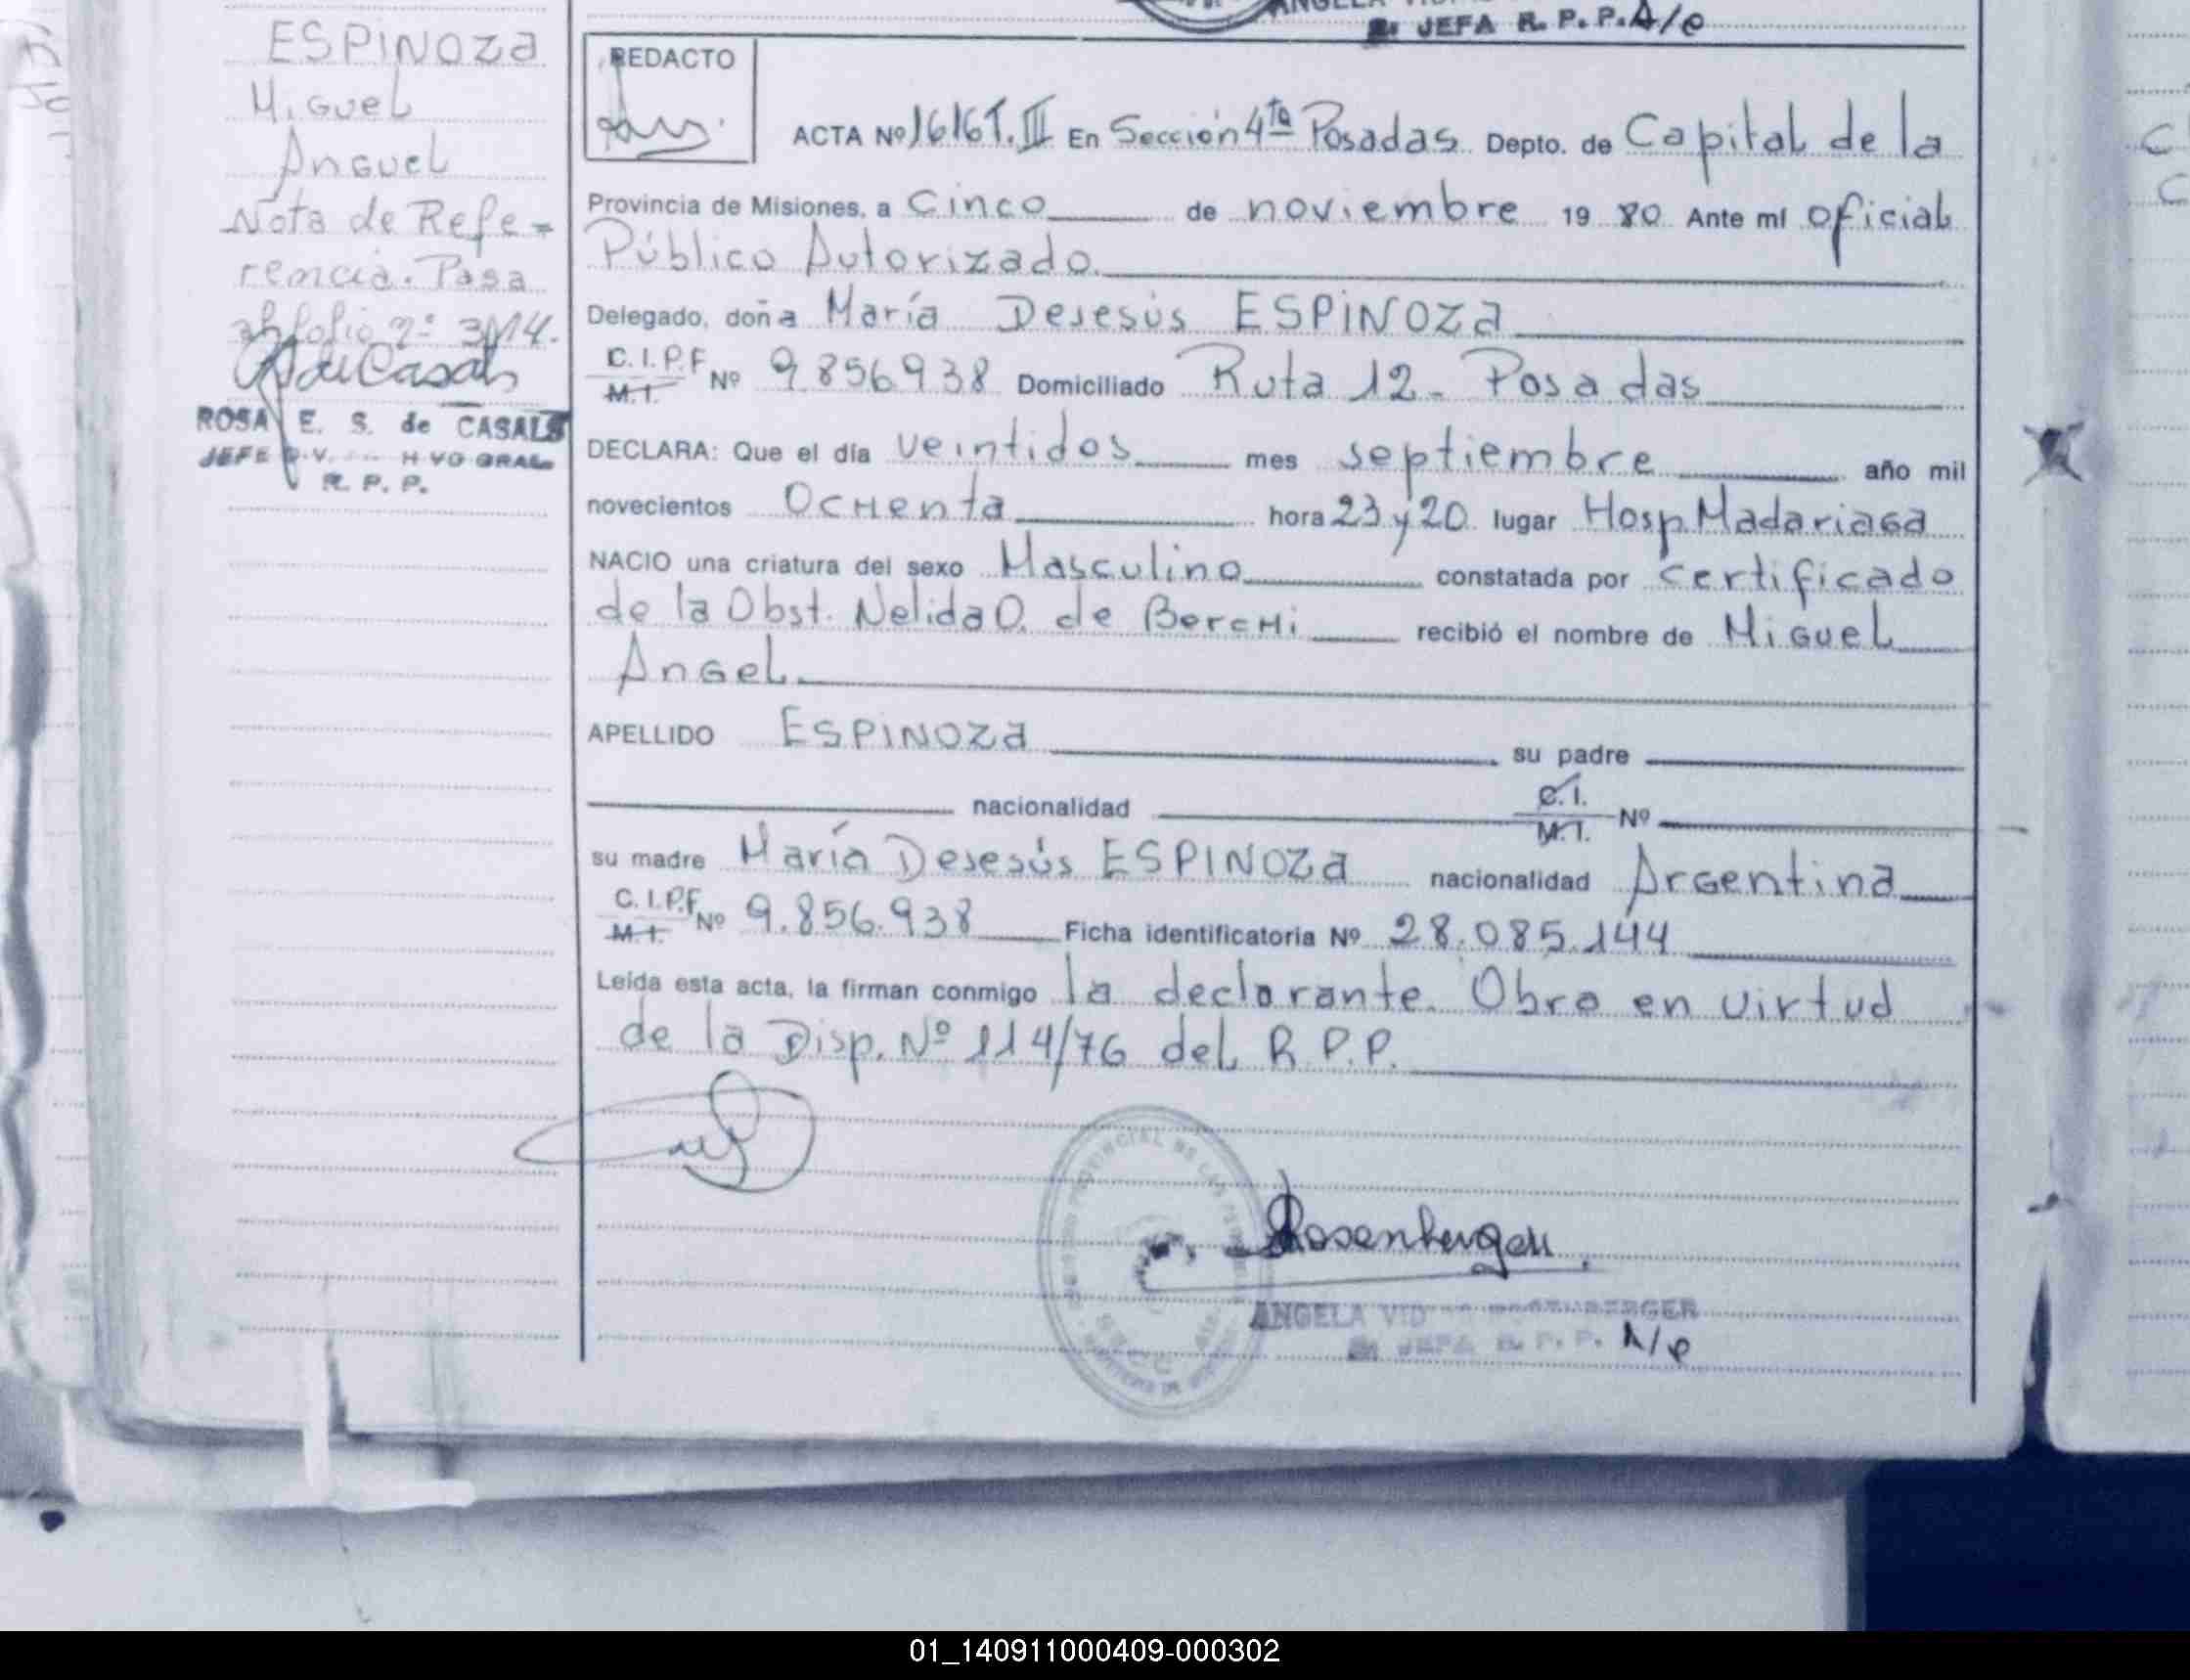 JEFA R. P. P. A/c
ESPINOZA
Miguel
Anguel
Nota de Refe=
rencia. Pasa
al folio nº 314.
ROSA E. S. de CASALS
JEFE
R. P. P.
REDACTO
ACTA Nº 1616 T. III En Sección 4ta Posadas Depto. de Capital de la
Provincia de Misiones, a Cinco de noviembre 19 80 Ante mí oficial
Público Autorizado.
Delegado, doña María Dejesús ESPINOZA
C.I.P.F
M.I. Nº 9.856938 Domiciliado Ruta 12 - Posadas
DECLARA: Que el día veintidos mes septiembre año mil
novecientos Ochenta hora 23 y 20 lugar Hosp. Madariaga
NACIO una criatura del sexo Masculino constatada por certificado
de la Obst. Nelida O. de Berchi recibió el nombre de Miguel
Angel.
APELLIDO ESPINOZA su padre
nacionalidad C.I.
M.I. Nº
su madre María Dejesús ESPINOZA nacionalidad Argentina
C.I.P.F.
M.I. Nº 9.856.938 Ficha identificatoria Nº 28.085.144
Leída esta acta, la firman conmigo la declarante. Obro en virtud
de la Disp. Nº 114/76 del R.P.P.
Rosenberger
ANGELA VID ROSENBERGER
JEFA R. P. P. A/c
01_140911000409-000302